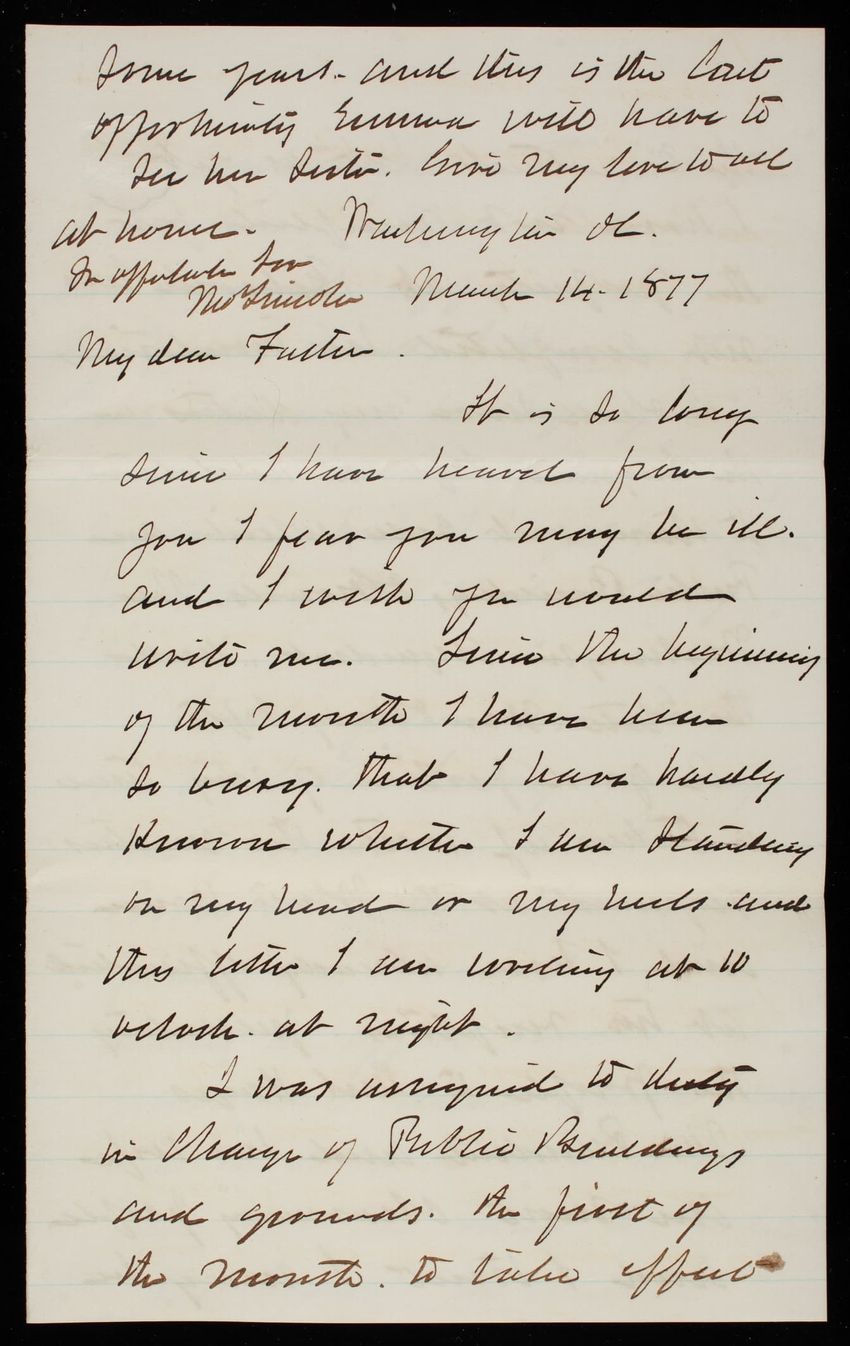 some years - and this is the last
opportunity Emma will have to
see her sister. Give my love to all
at home.
In affectionate Son
Thos Lincoln
Washington DC.
March 14 - 1877
My dear Father.
It is so long
since I have heard from
you I fear you may be ill.
and I wish you would
write me. Since the beginning
of the month I have been
so busy. that I have hardly
known whether I am standing
on my head or my heels - and
this letter I am writing at 10
oclock. at night.
I was assigned to duty
in Charge of Public Buildings
and grounds. the first of
the month. to take effect